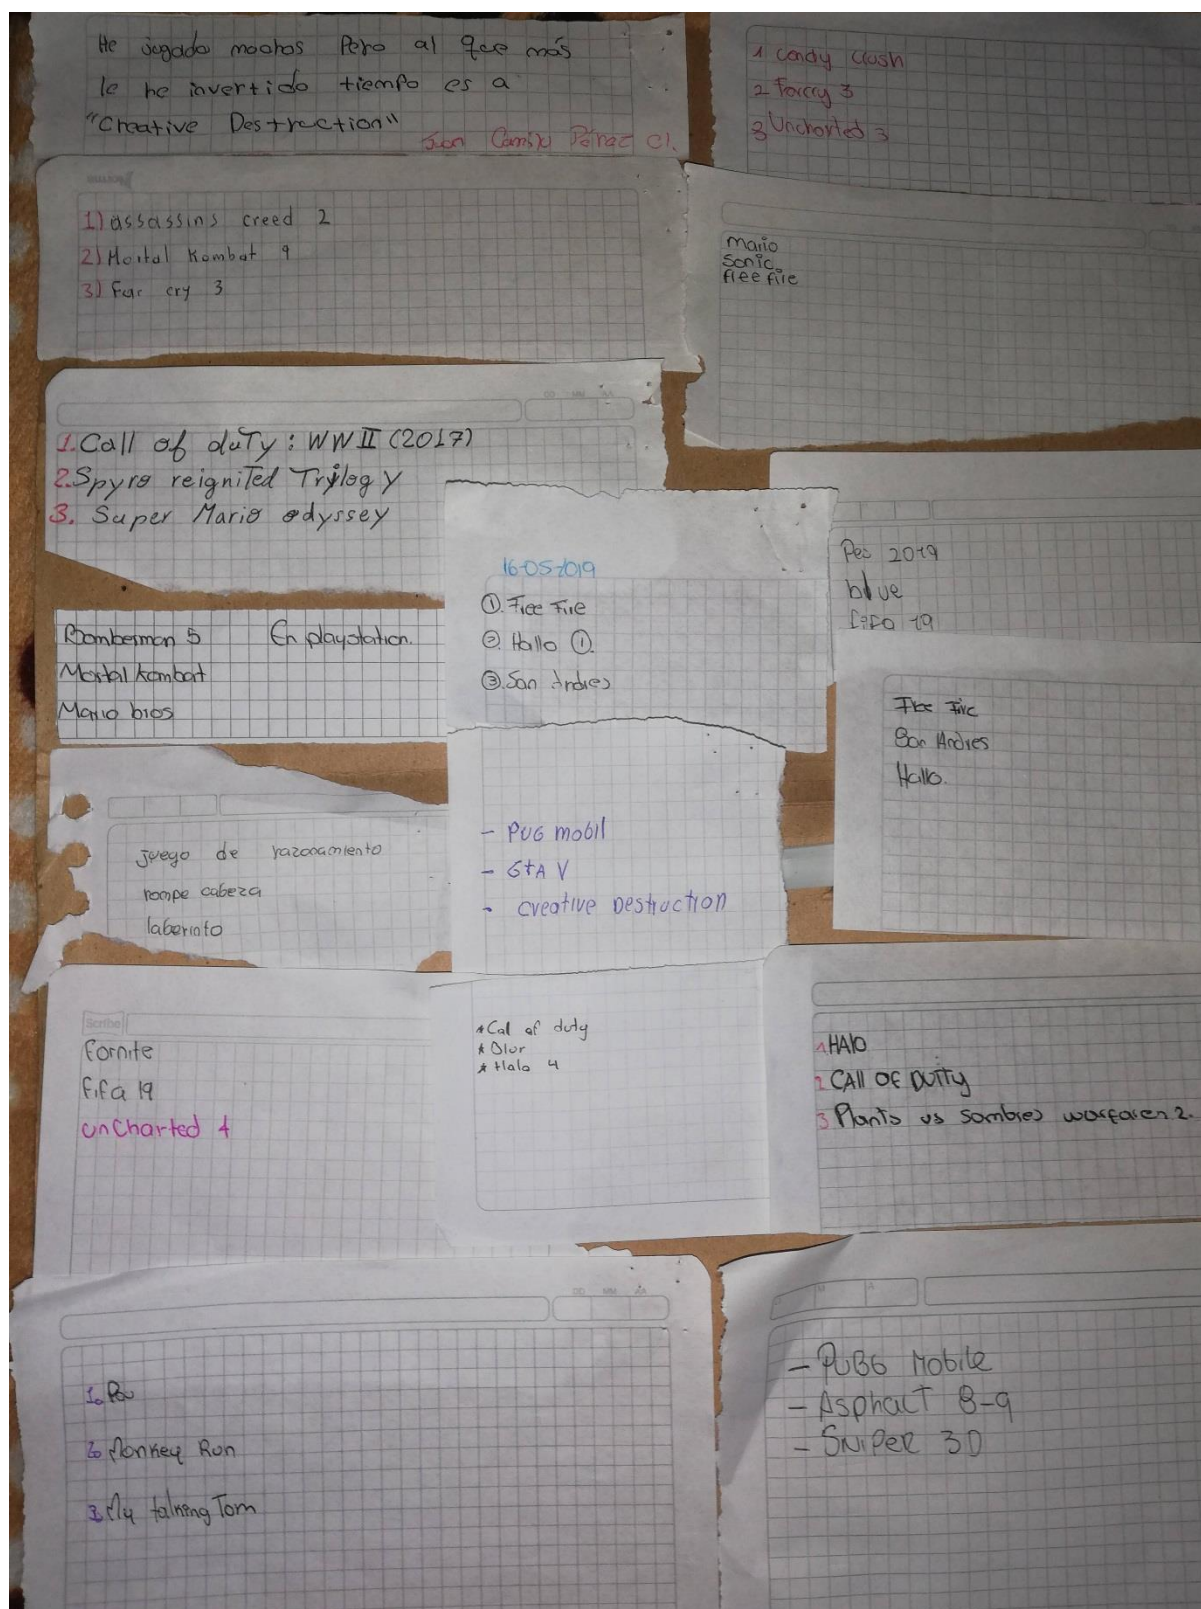 He jogado mochos Pero al que más
le he invertido tiempo es a
"Creative Destruction"
Juan Camilo Pérez Cl.
1 Candy Crush
2 Farcry 3
3 Uncharted 3
1) assassins creed 2
2) Mortal Kombat 9
3) Far cry 3
mario
sonic
free fire
1. Call of duty: WW II (2017)
2. Spyro reignited Trilogy
3. Super Mario odyssey
16-05-2019
①. Free Fire
②. Hallo ①.
③. San Andres
Pes 2019
blue
fifa 19
Bomberman 5 En playstation.
Mortal kombat
Mario bros
Free Fire
San Andres
Hallo.
juego de razonamiento
rompe cabeza
laberinto
- PUG mobil
- GtA V
- creative Destruction
Scribe
fornite
fifa 19
uncharted 4
* Cal of duty
* Blur
* Halo 4
1 HAlO
2 CAll OF DUTTy
3 Plants vs sombies warfaren 2.
1. Pou
2. Monkey Run
3. My talking Tom
- PUBG Mobile
- Asphalt 8-9
- SNiPER 3D